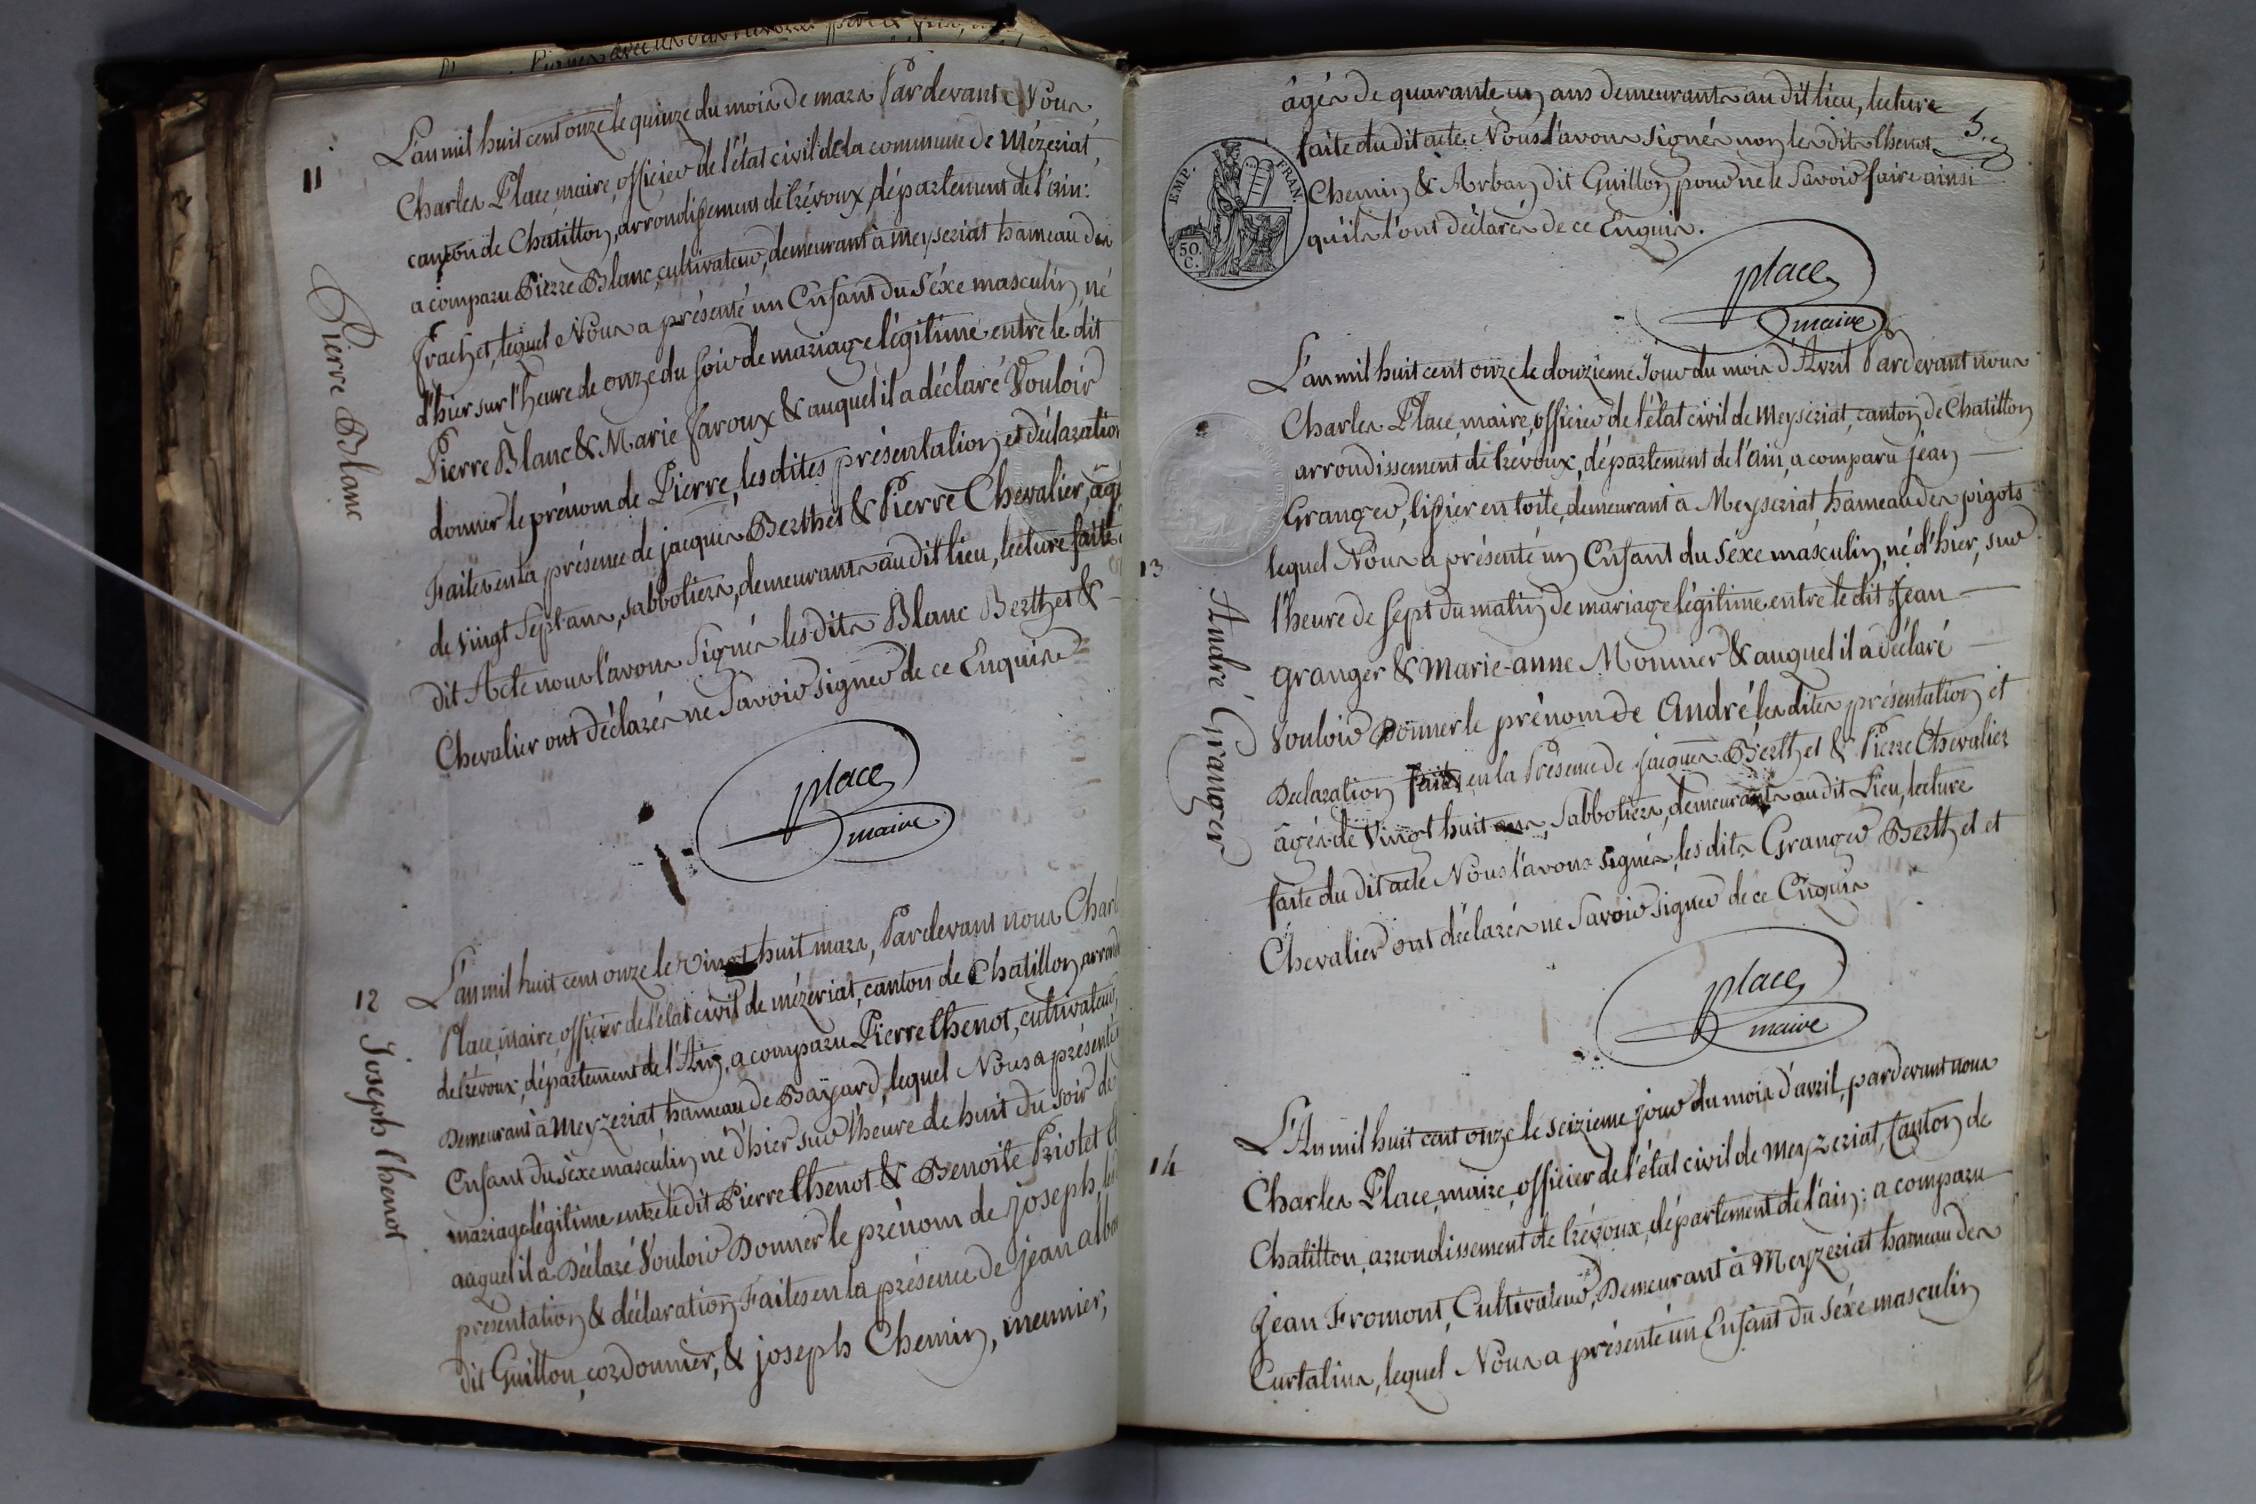 11
Pierre Blanc
L'an mil huit cent onze le quinze du mois de mars Pardevant Nous,
Charles Place, maire, officier de l'état civil de la commune de Mézeriat,
canton de Chatillon, arrondissement de trévoux, département de l'ain:
a comparu Pierre Blanc, cultivateur, demeurant à Meyseriat hameau des
frachet, lequel Nous a présenté un Enfant du Séxe masculin, né
d'hier sur l'heure de onze du soir de mariage légitime entre le dit
Pierre Blanc & Marie Saroux & auquel il a déclaré Vouloir
donner le prénom de Pierre, les dites présentation et déclaration
Faites en la présence de jacques Berthet & Pierre Chevalier, âgé
de vingt Sept ans, sabbotiers, demeurants au dit lieu, lecture faite
dit Acte nous l'avons Signés les dits Blanc Berthet &
Chevalier ont déclarés ne Savoir signer de ce Enquis
place
maire
12
Joseph thenot
L'an mil huit cent onze le vingt huit mars, Pardevant nous Charl
Place, maire, officier de l'état civil de mézeriat, canton de Chatillon, arrond
de trévoux, département de l'Ain, a comparu Pierre thenot, cultivateur,
Demeurant à Meyzeriat hameau de Bayard, lequel Nous a présenté
Enfant du séxe masculin né d'hier sur l'heure de huit du soir de
mariage légitime entre le dit Pierre thenot & Benoite Priolet &
auquel il a Déclaré Vouloir Donner le prénom de joseph, les
présentation & déclaration Faites en la présence de jean alba
dit Guillon, cordonnier, & joseph Chemin, meunier,
5.
âgés de quarante un ans demeurants au dit lieu, lecture
faite du dit acte Nous l'avons signés non les dits thenot
Chemin & Arban dit Guillon pour ne le Savoir faire ainsi
qu'ils l'ont déclarés de ce Enquis.
EMP. FRAN.
50.
C.
place
maire
13
André Granger
L'an mil huit cent onze le douzieme Jour du mois d'Avril Pardevant nous
Charles Place, maire, officier de l'état civil de Meyseriat, canton de Chatillon
arrondissement de trévoux, département de l'ain, a comparu jean
Granger, tissier en toile, demeurant à Meyseriat, hameau des pigots
lequel Nous a présenté un Enfant du Séxe masculin, né d'hier, sur
l'heure de Sept du matin de mariage légitime entre le dit Jean
Granger & Marie-anne Monnier & auquel il a déclaré
Vouloir Donner le prénom de André, les dites présentation et
Declaration faites en la Présence de jacques Berthet & Pierre Chevalier
âgés de Vingt huit ans, Sabbotiers, demeurants au dit Lieu, lecture
faite du dit acte Nous l'avons signés, les dits Granger Berthet et
Chevalier ont déclarés ne Savoir signer de ce Enquis
place
maire
14
L'An mil huit cent onze le seizieme jour du mois d'avril, pardevant nous
Charles Place, maire, officier de l'état civil de Meyzeriat, Canton de
Chatillon, arrondissement de trévoux, département de l'ain: a comparu
Jean Fromont, Cultivateur, Demeurant à Meyzeriat hameau des
Curtalins, lequel Nous a présenté un Enfant du Séxe masculin